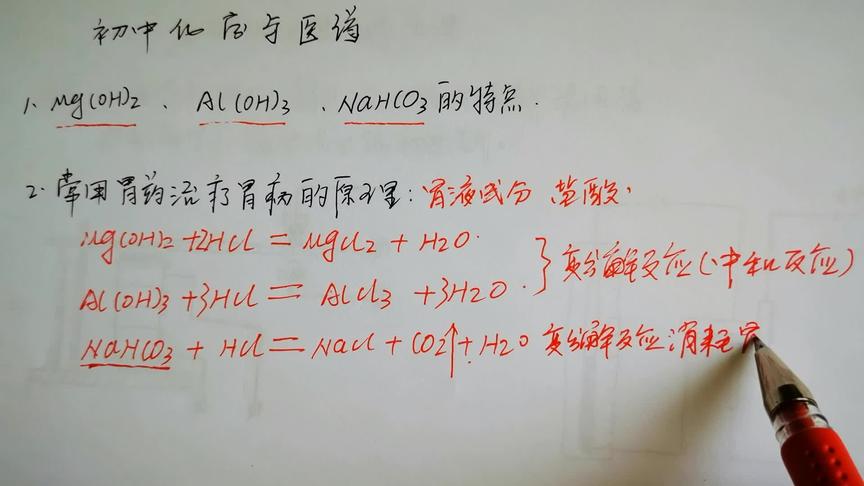 初中化学与医药
1. Mg(OH)2、Al(OH)3、NaHCO3的特点.
2. 常用胃药治疗胃病的原理:胃液成分 盐酸.
Mg(OH)2+2HCl=MgCl2+H2O.
Al(OH)3+3HCl=AlCl3+3H2O. }复分解反应(中和反应)
NaHCO3+HCl=NaCl+CO2↑+H2O 复分解反应消耗胃